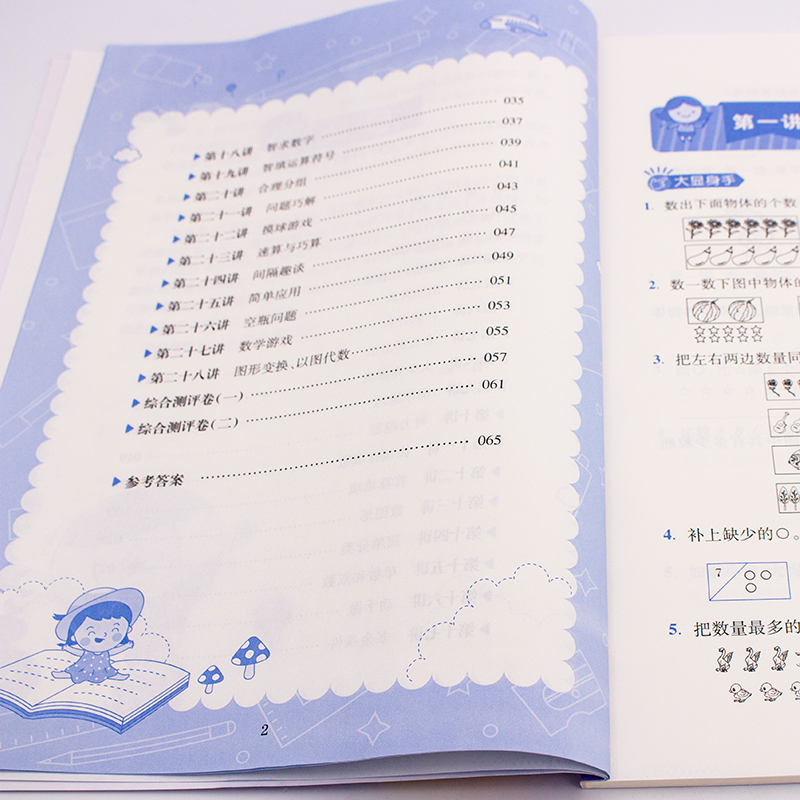 第十八讲 智求数字 …… 035
第十九讲 智填运算符号 …… 037
第二十讲 合理分组 …… 039
第二十一讲 问题巧解 …… 041
第二十二讲 摸球游戏 …… 043
第二十三讲 速算与巧算 …… 045
第二十四讲 间隔趣谈 …… 047
第二十五讲 简单应用 …… 049
第二十六讲 空瓶问题 …… 051
第二十七讲 数学游戏 …… 053
第二十八讲 图形变换、以图代数 …… 055
综合测评卷(一) …… 057
综合测评卷(二) …… 061
参考答案 …… 065
2
第一讲
大显身手
1. 数出下面物体的个数
2. 数一数下图中物体的
3. 把左右两边数量同
4. 补上缺少的○。
7
5. 把数量最多的